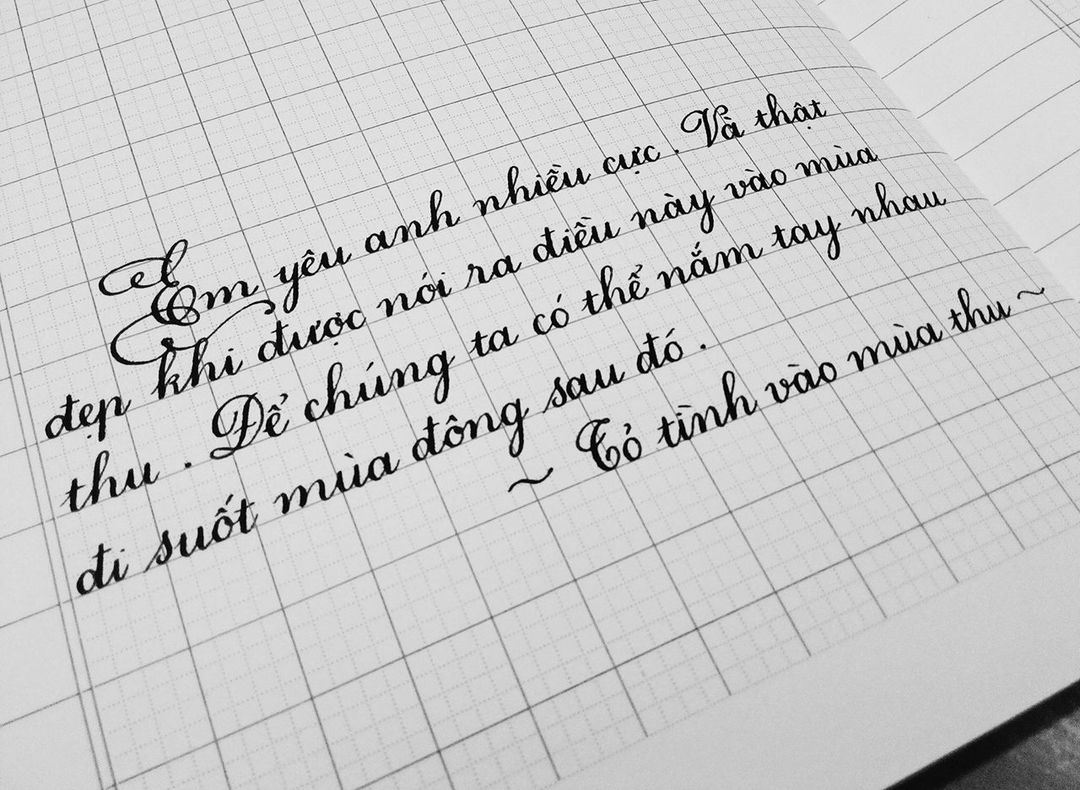 Em yêu anh nhiều cực. Và thật
đẹp khi được nói ra điều này vào mùa
thu. Để chúng ta có thể nắm tay nhau
đi suốt mùa đông sau đó.
~ Tỏ tình vào mùa thu ~